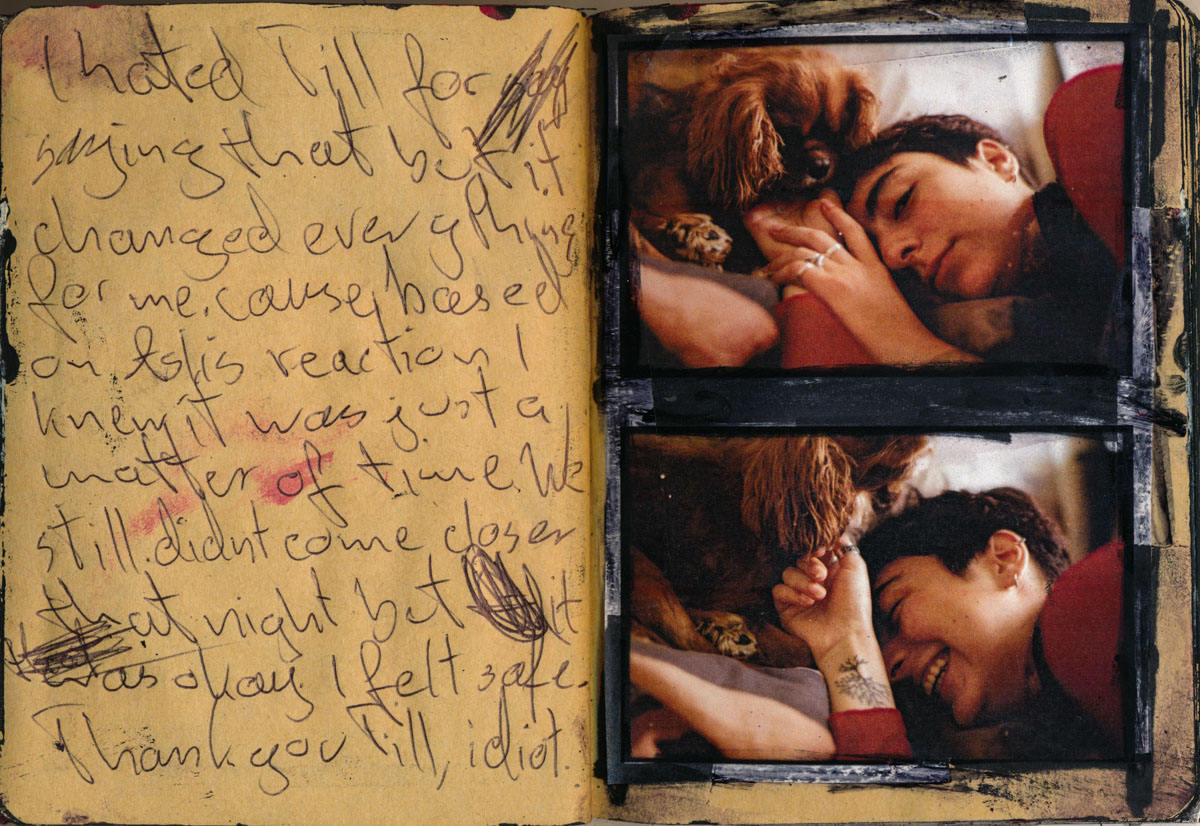 I hated Till for
saying that but it
changed everything
for me. cause based
on his reaction I
knew it was just a
matter of time. We
still didnt come closer
that night but it
was okay. I felt safe.
Thank you Till, idiot.